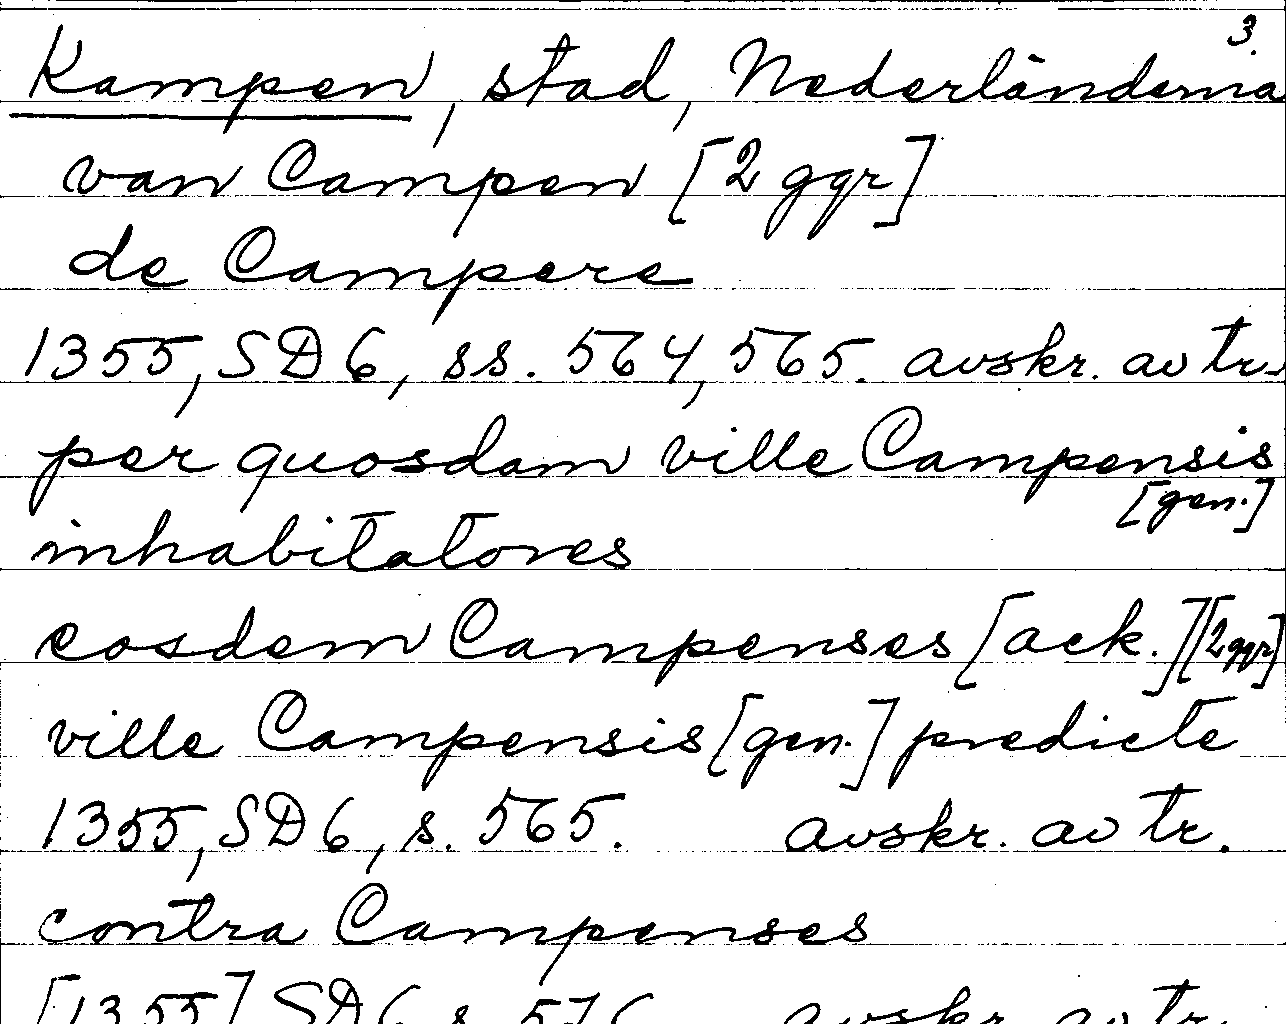 3.
Kampen, stad, Nederländerna
van Campen [2 ggr]
de Campere
1355, SD6, ss. 564, 565. avskr. av tr.
per quosdam ville Campensis
[gen.]
inhabitatores
eosdem Campenses [ack.] [2 ggr]
ville Campensis [gen.] predicte
1355, SD6, s. 565. avskr. av tr.
contra Campenses
[1355] SD6 s. 576 avskr. av tr.